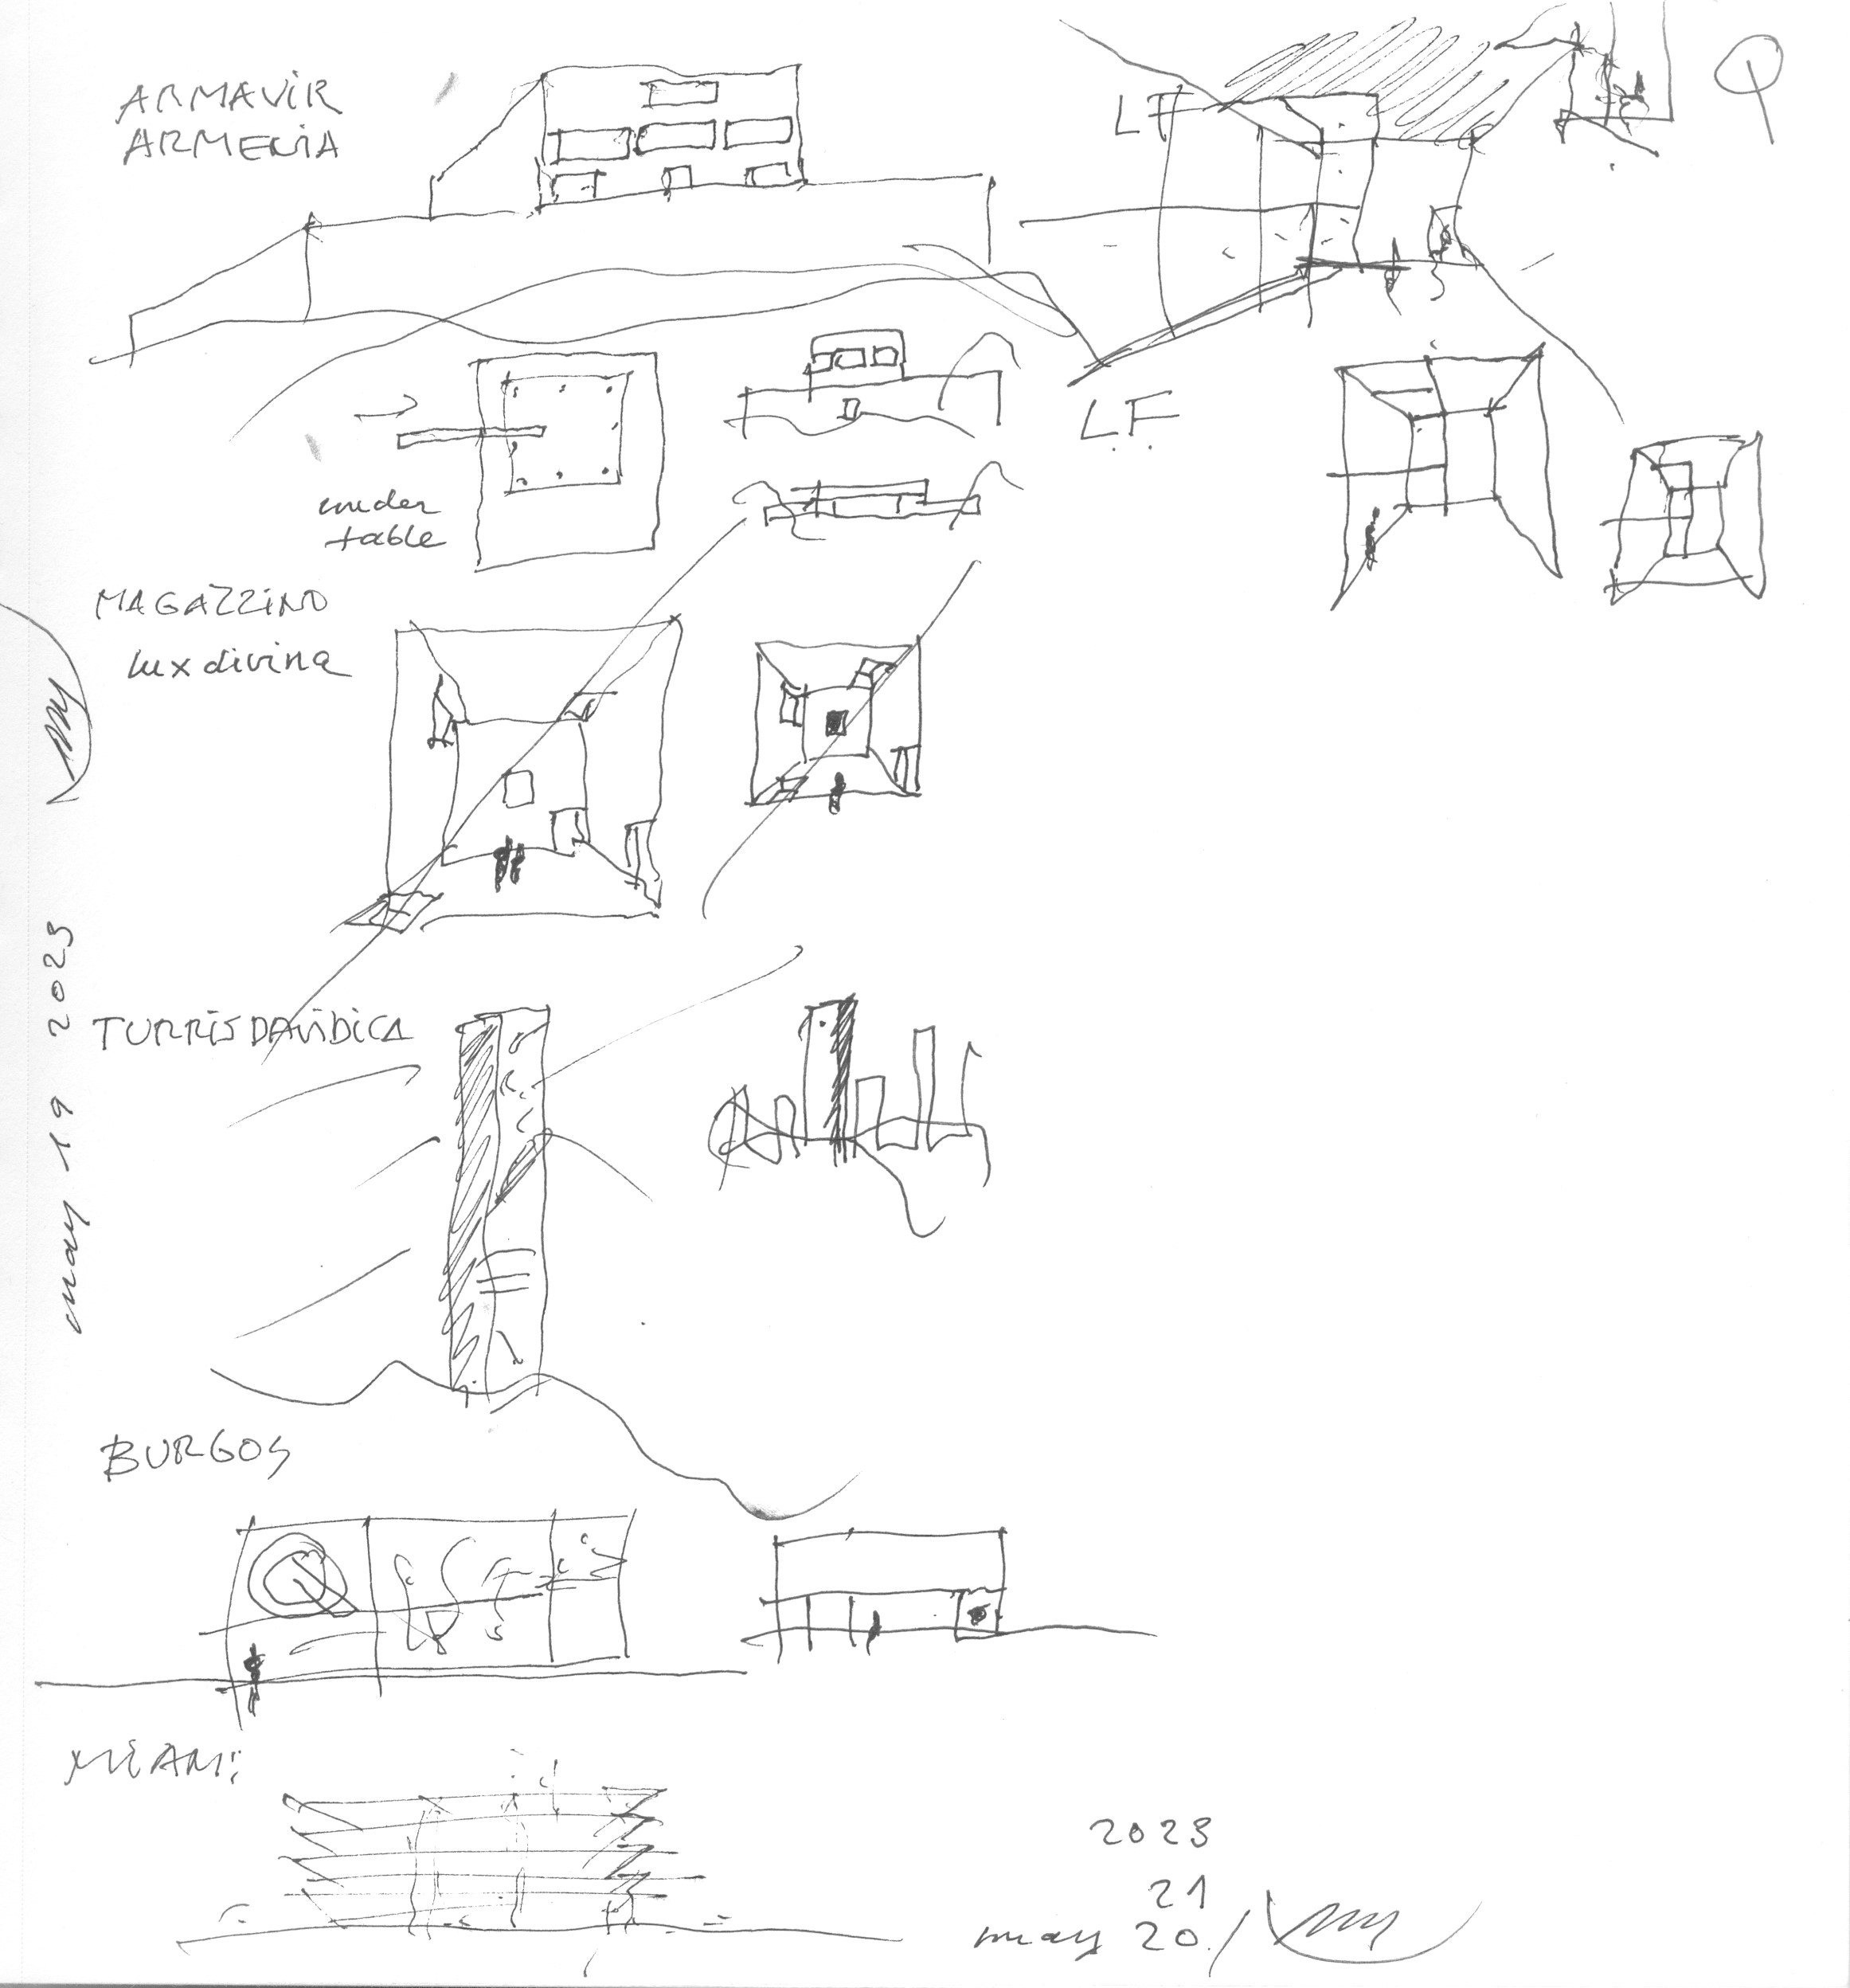 ARMAVIR
ARMENIA
LF
L.F.
under
table
MAGAZZINO
lux divina
TURRIS DAVIDICA
may 19 2023
BURGOS
MIAMI
2023
21
may 20/